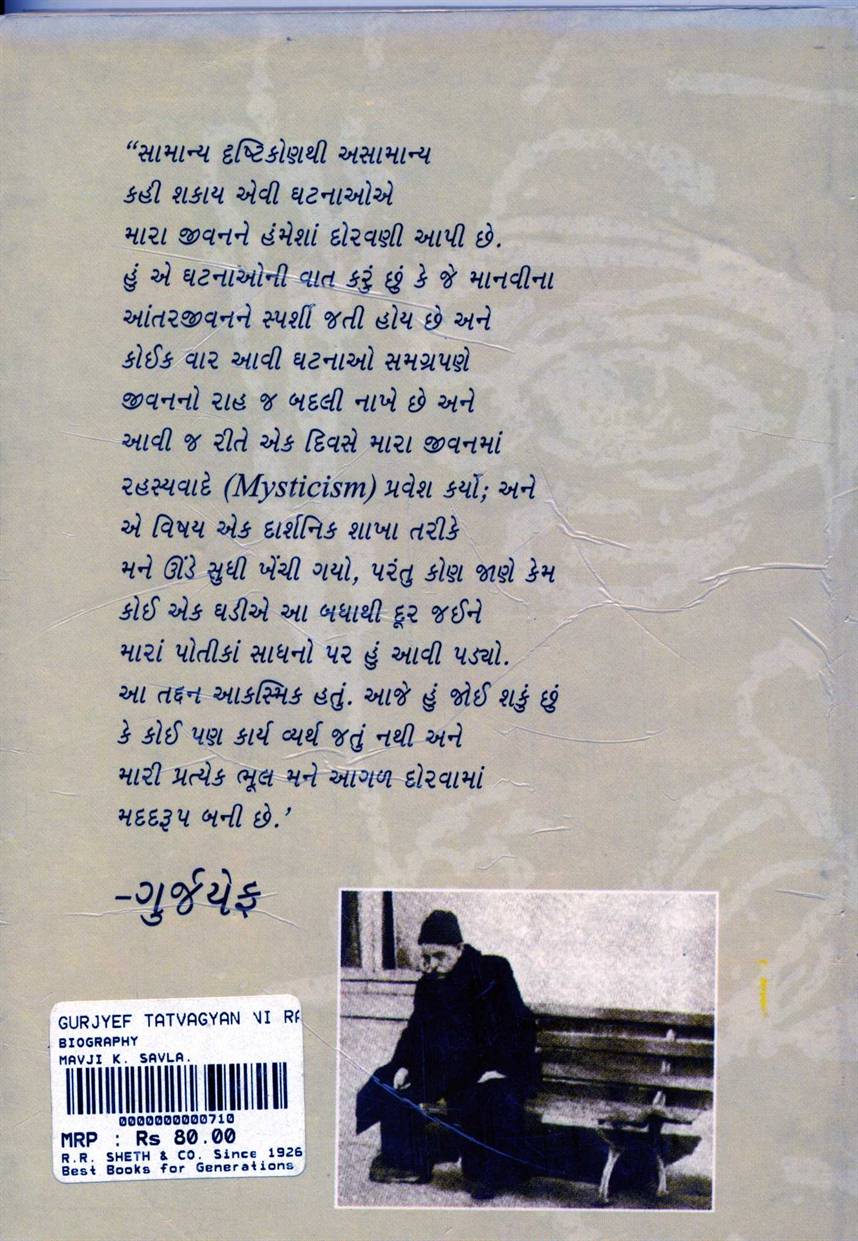 “સામાન્ય દૃષ્ટિકોણથી અસામાન્ય
કહી શકાય એવી ઘટનાઓએ
મારા જીવનને હંમેશાં દોરવણી આપી છે.
હું એ ઘટનાઓની વાત કરું છું કે જે માનવીના
આંતરજીવનને સ્પર્શી જતી હોય છે અને
કોઈક વાર આવી ઘટનાઓ સમગ્રપણે
જીવનનો રાહ જ બદલી નાખે છે અને
આવી જ રીતે એક દિવસે મારા જીવનમાં
રહસ્યવાદે (Mysticism) પ્રવેશ કર્યો; અને
એ વિષય એક દાર્શનિક શાખા તરીકે
મને ઊંડે સુધી ખેંચી ગયો, પરંતુ કોણ જાણે કેમ
કોઈ એક ઘડીએ આ બધાથી દૂર જઈને
મારાં પોતીકાં સાધનો પર હું આવી પડ્યો.
આ તદ્દન આકસ્મિક હતું. આજે હું જોઈ શકું છું
કે કોઈ પણ કાર્ય વ્યર્થ જતું નથી અને
મારી પ્રત્યેક ભૂલ મને આગળ દોરવામાં
મદદરૂપ બની છે.’
-ગુર્જયેફ
GURJYEF TATVAGYAN VI RA
BIOGRAPHY
MAVJI K. SAVLA.
0000000000710
MRP : Rs 80.00
R.R. SHETH & CO. Since 1926
Best Books for Generations